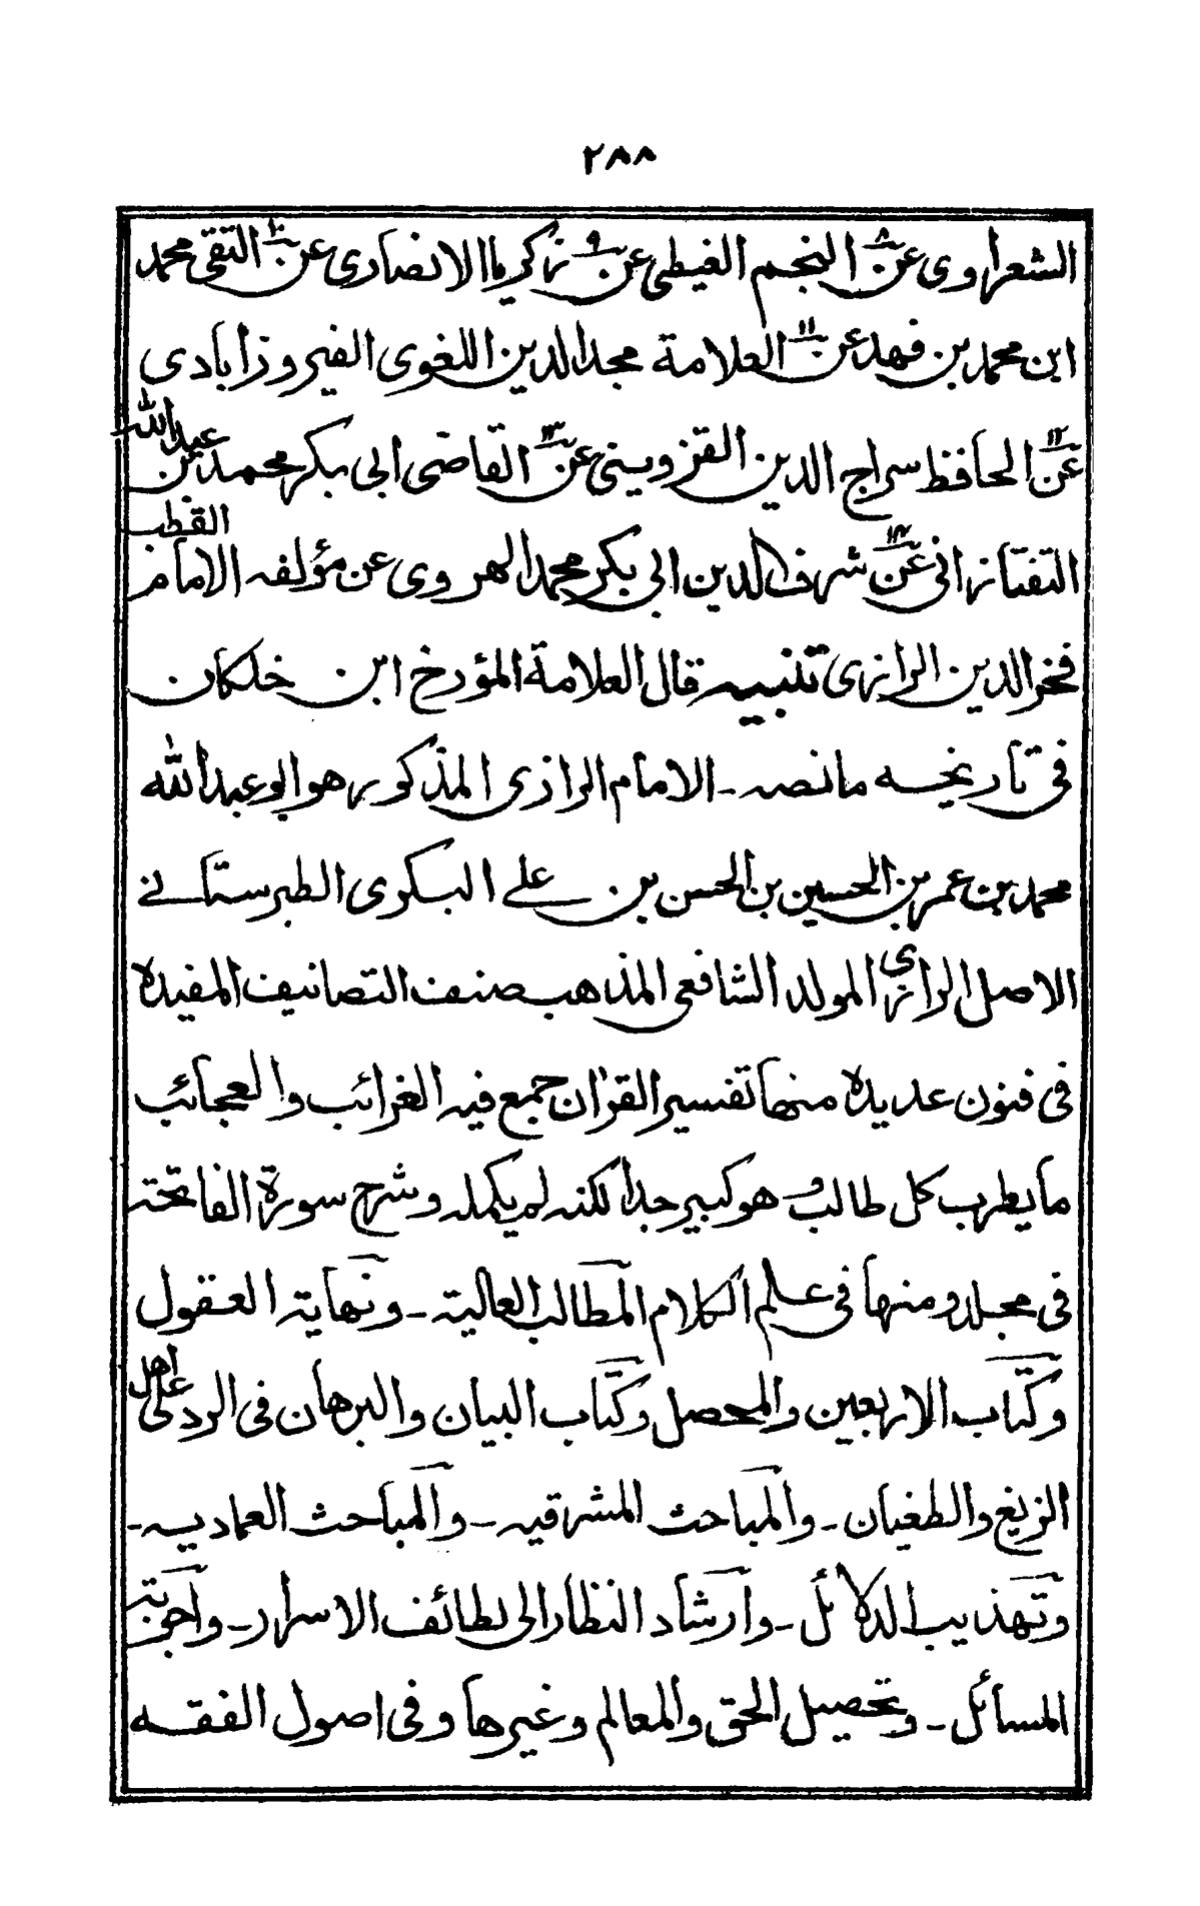 ٢٨٨
الشعراوى عن ٨ النجم الغيطى عن ٩ زكريا الانصارى عن ١٠ التقى محمد
ابن محمد بن فهد عن ١١ العلامة مجد الدين اللغوى الفيروزآبادى
عن ١٢ الحافظ سراج الدين القزوينى عن ١٣ القاضى ابى بكر محمد بن عبدالله
التفتازانى عن ١٤ شرف الدين ابى بكر محمد الهروى عن مؤلفه الامام القطب
فخر الدين الرازى تنبيه قال العلامة المؤرخ ابن خلكان
فى تاريخه مانصه ـ الامام الرازى المذكور هو ابو عبدالله
محمد بن عمر بن الحسين بن الحسن بن على البكرى الطبرستانے
الاصل الرازى المولد الشافعى المذهب صنف التصانيف المفيدة
فى فنون عديدة منها تفسير القرٰان جمع فيه الغرائب والعجائب
ما يطرب كل طالب وهو كبير جدا لكنه لم يكمله وشرح سورة الفاتحة
فى مجلد ومنها فى علم الكلام المطالب العالية ـ ونهاية العقول
وكتاب الاربعين والمحصل وكتاب البيان والبرهان فى الرد على اهل
الزيغ والطغيان ـ والمباحث المشرقيه ـ والمباحث العماديه ـ
وتهذيب الدلائل ـ وارشاد النظار الى لطائف الاسرار ـ واجوبة
المسائل ـ وتحصيل الحق والمعالم وغيرها وفى اصول الفقه